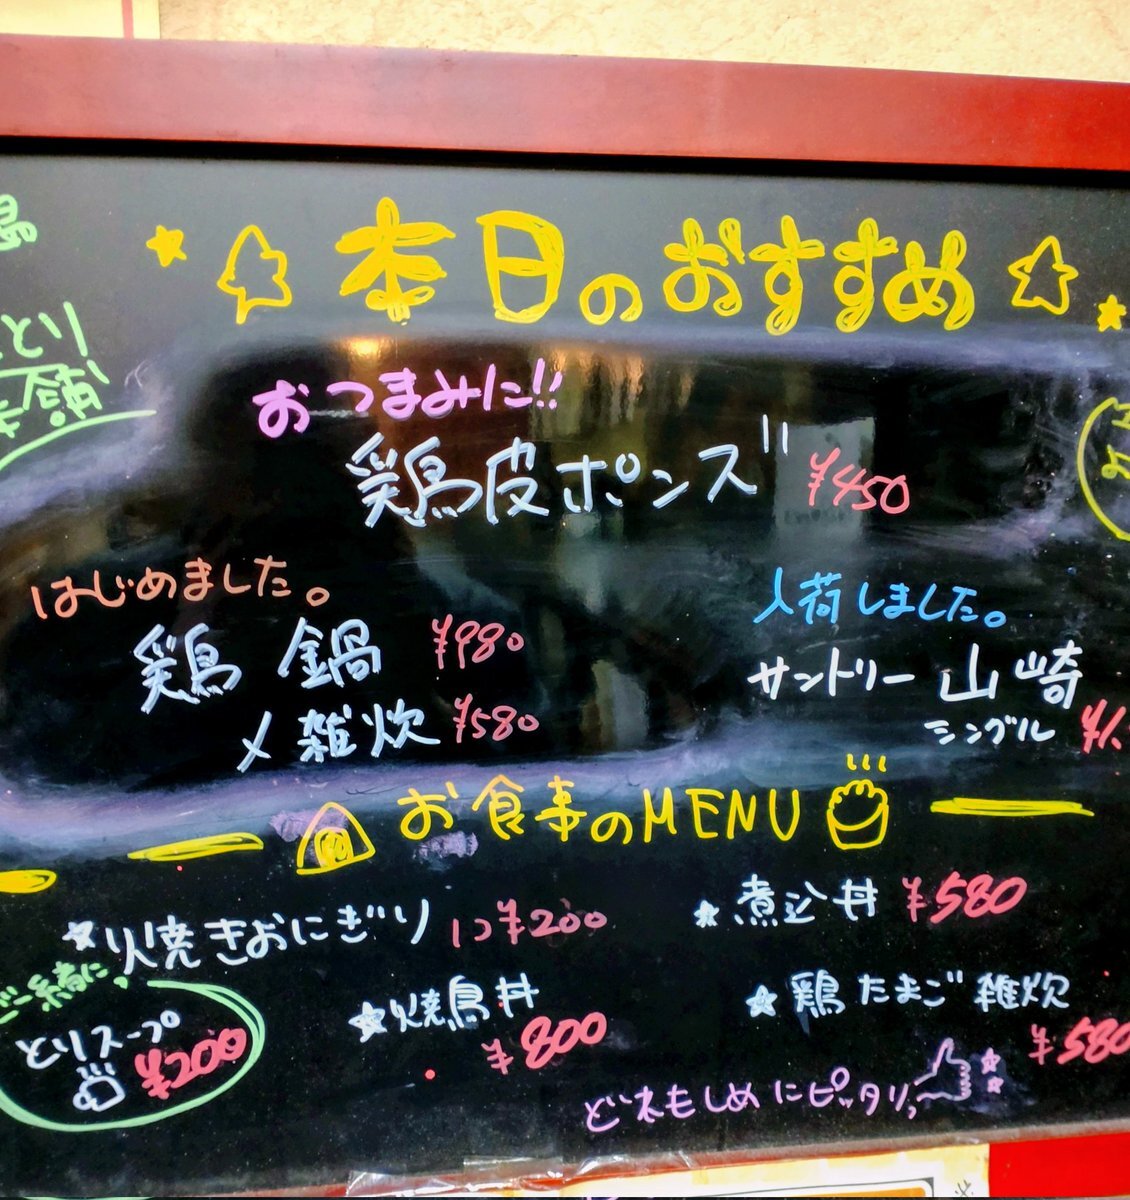 本日のおすすめ
とり
おつまみに!!
鶏皮ポンズ ¥450
はじめました。
鶏鍋 ¥980
〆雑炊 ¥580
入荷しました。
サントリー 山崎
シングル ¥1.
お食事のMENU
焼きおにぎり 1コ ¥200
煮込丼 ¥580
ご一緒に、
とりスープ
¥200
焼鳥丼
¥800
鶏たまご雑炊
¥580
どれもしめにピッタリ